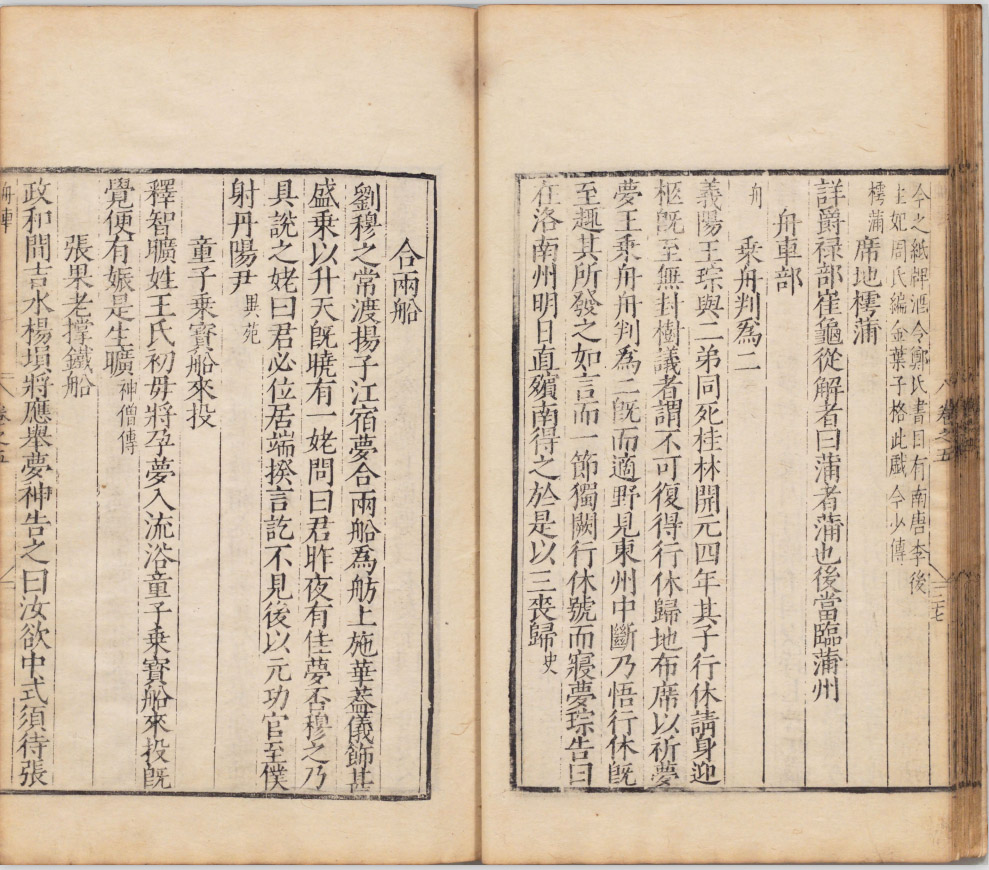 今之紙牌㴠今鄭氏書目有南唐李後
主妃周氏編金葉子格此戲今少傳
樗蒲
席地樗蒲
詳爵祿部崔龜從解者曰蒲者蒲也後當臨蒲州
舟車部
乘舟判為二
舟
義陽王琮與二弟同死桂林開元四年其子行休請身迎
柩既至無封樹議者謂不可復得行休歸地布席以祈夢
夢王乘舟舟判為二既而適野見東州中斷乃悟行休既
至趣其所發之如言而一節獨闕行休號而寢夢琮告曰
在洛南州明日直殯南得之於是以三喪歸史
卷之五
合兩船
劉穆之常渡揚子江宿夢合兩船為舫上施華蓋儀飾甚
盛乘以升天既曉有一姥問曰君昨夜有佳夢否穆之乃
具說之姥曰君必位居端揆言訖不見後以元功官至僕
射丹陽尹異苑
童子乘寶船來投
釋智曠姓王氏初母將孕夢入流浴童子乘寶船來投既
覺便有娠是生曠神僧傳
張果老撐鐵船
政和間吉水楊塤將應舉夢神告之曰汝欲中式須待張
舟車
卷之五